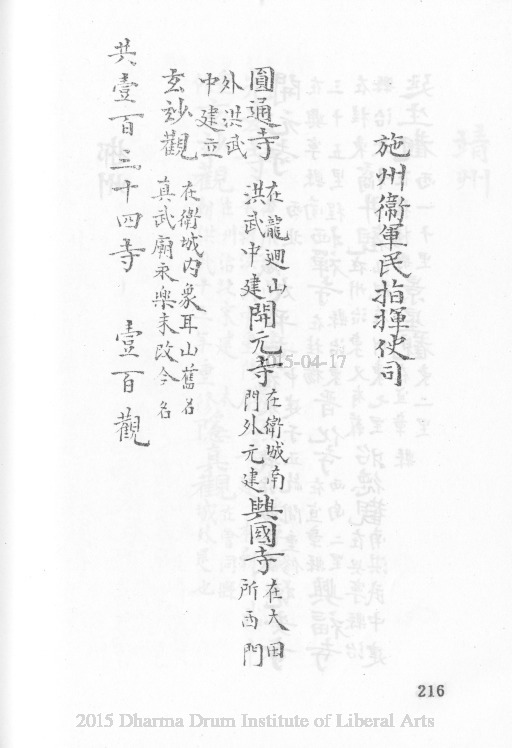 施州衞軍民指揮使司
圓通寺 在龍迴山洪武中建 開元寺 在衞城南門外元建 興國寺 在大田所西門
外洪武中建立
玄妙觀 在衞城内象耳山舊名真武廟永樂末改今名
共壹百三十四寺 壹百觀
2015-04-17
216
2015 Dharma Drum Institute of Liberal Arts